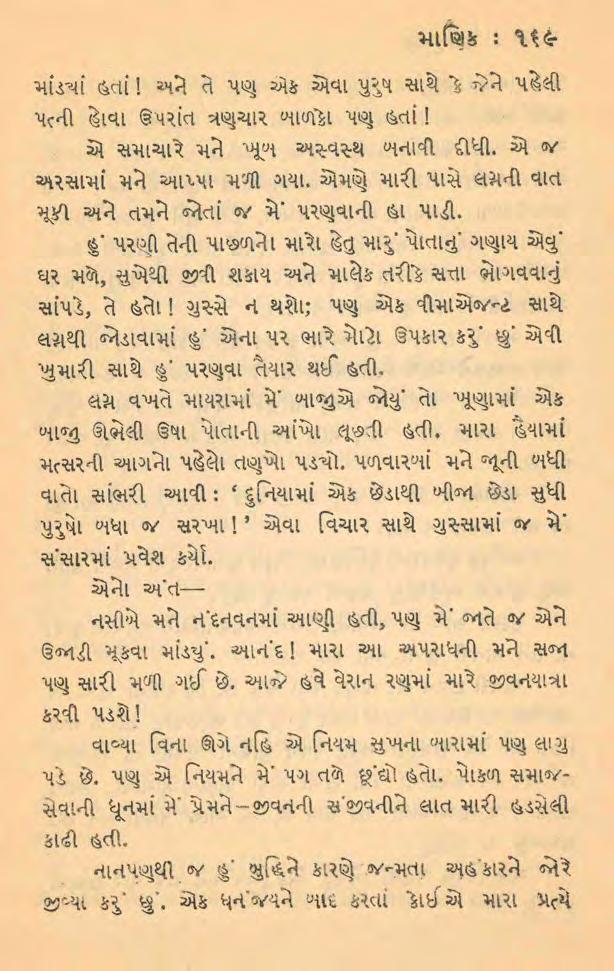 માણિક : ૧૬૯
માંડ્યાં હતાં! અને તે પણ એક એવા પુરુષ સાથે કે જેને પહેલી
પત્ની હોવા ઉપરાંત ત્રણચાર બાળકો પણ હતાં!
એ સમાચારે મને ખૂબ અસ્વસ્થ બનાવી દીધી. એ જ
અરસામાં મને આપ્પા મળી ગયા. એમણે મારી પાસે લગ્નની વાત
મૂકી અને તમને જોતાં જ મેં પરણવાની હા પાડી.
હું પરણી તેની પાછળનો મારો હેતુ મારું પોતાનું ગણાય એવું
ઘર મળે, સુખેથી જીવી શકાય અને માલેક તરીકે સત્તા ભોગવવાનું
સાંપડે, તે હતો! ગુસ્સે ન થશો; પણ એક વીમાએજન્ટ સાથે
લગ્નથી જોડાવામાં હું એના પર ભારે મોટો ઉપકાર કરું છું એવી
ખુમારી સાથે હું પરણવા તૈયાર થઈ હતી.
લગ્ન વખતે માયરામાં મેં બાજુએ જોયું તો ખૂણામાં એક
બાજુ ઊભેલી ઉષા પોતાની આંખો લૂછતી હતી. મારા હૈયામાં
મત્સરની આગનો પહેલો તણખો પડ્યો. પળવારબાં મને જૂની બધી
વાતો સાંભરી આવી : ‘દુનિયામાં એક છેડાથી બીજા છેડા સુધી
પુરુષો બધા જ સરખા!’ એવા વિચાર સાથે ગુસ્સામાં જ મેં
સંસારમાં પ્રવેશ કર્યો.
એનો અંત—
નસીબે મને નંદનવનમાં આણી હતી, પણ મેં જાતે જ એને
ઉજાડી મૂકવા માંડ્યું. આનંદ! મારા આ અપરાધની મને સજા
પણ સારી મળી ગઈ છે. આજે હવે વેરાન રણમાં મારે જીવનયાત્રા
કરવી પડશે!
વાવ્યા વિના ઊગે નહિ એ નિયમ સુખના બારામાં પણ લાગુ
પડે છે. પણ એ નિયમને મેં પગ તળે છૂંદ્યો હતો. પોકળ સમાજ-
સેવાની ધૂનમાં મેં પ્રેમને–જીવનની સંજીવનીને લાત મારી હડસેલી
કાઢી હતી.
નાનપણથી જ હું બુદ્ધિને કારણે જન્મતા અહંકારને જોરે
જીવ્યા કરું છું. એક ધનંજયને બાદ કરતાં કોઈએ મારા પ્રત્યે